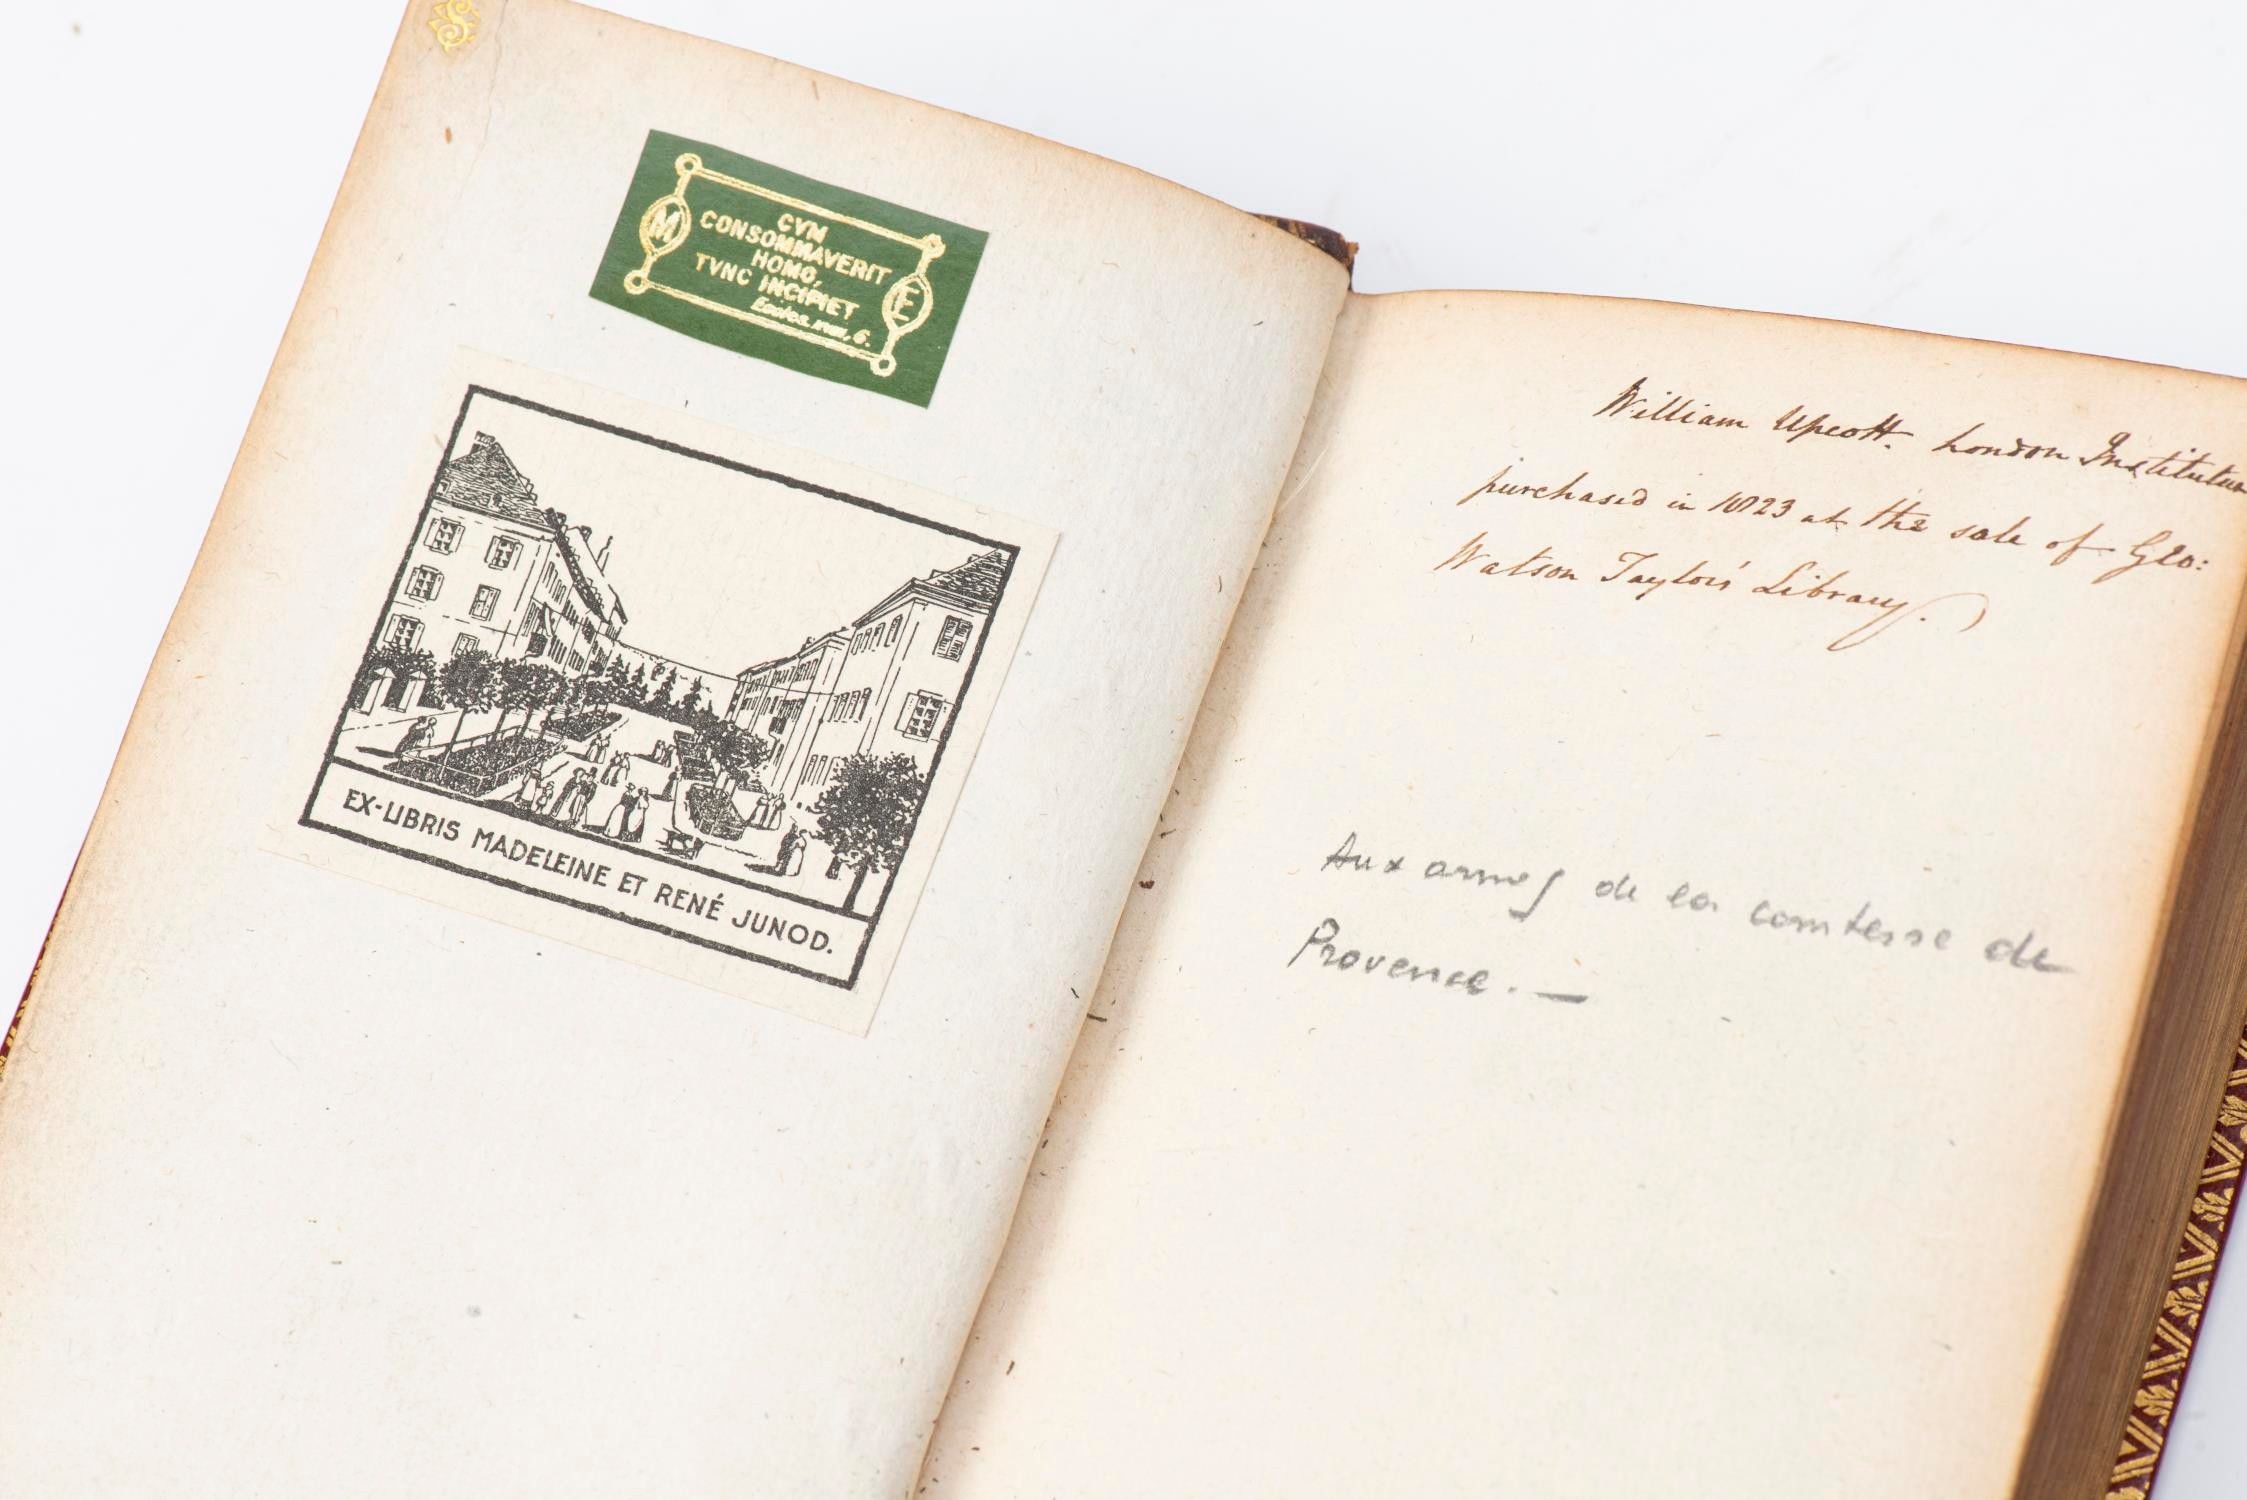 CVM
CONSOMMAVERIT
HOMO,
TVNC INCIPIET
M
E
EX-LIBRIS MADELEINE ET RENÉ JUNOD.
William Upcott. London Institution
purchased in 1823 at the sale of Geo:
Watson Taylor's Library.
Aux armes de la comtesse de
Provence. —